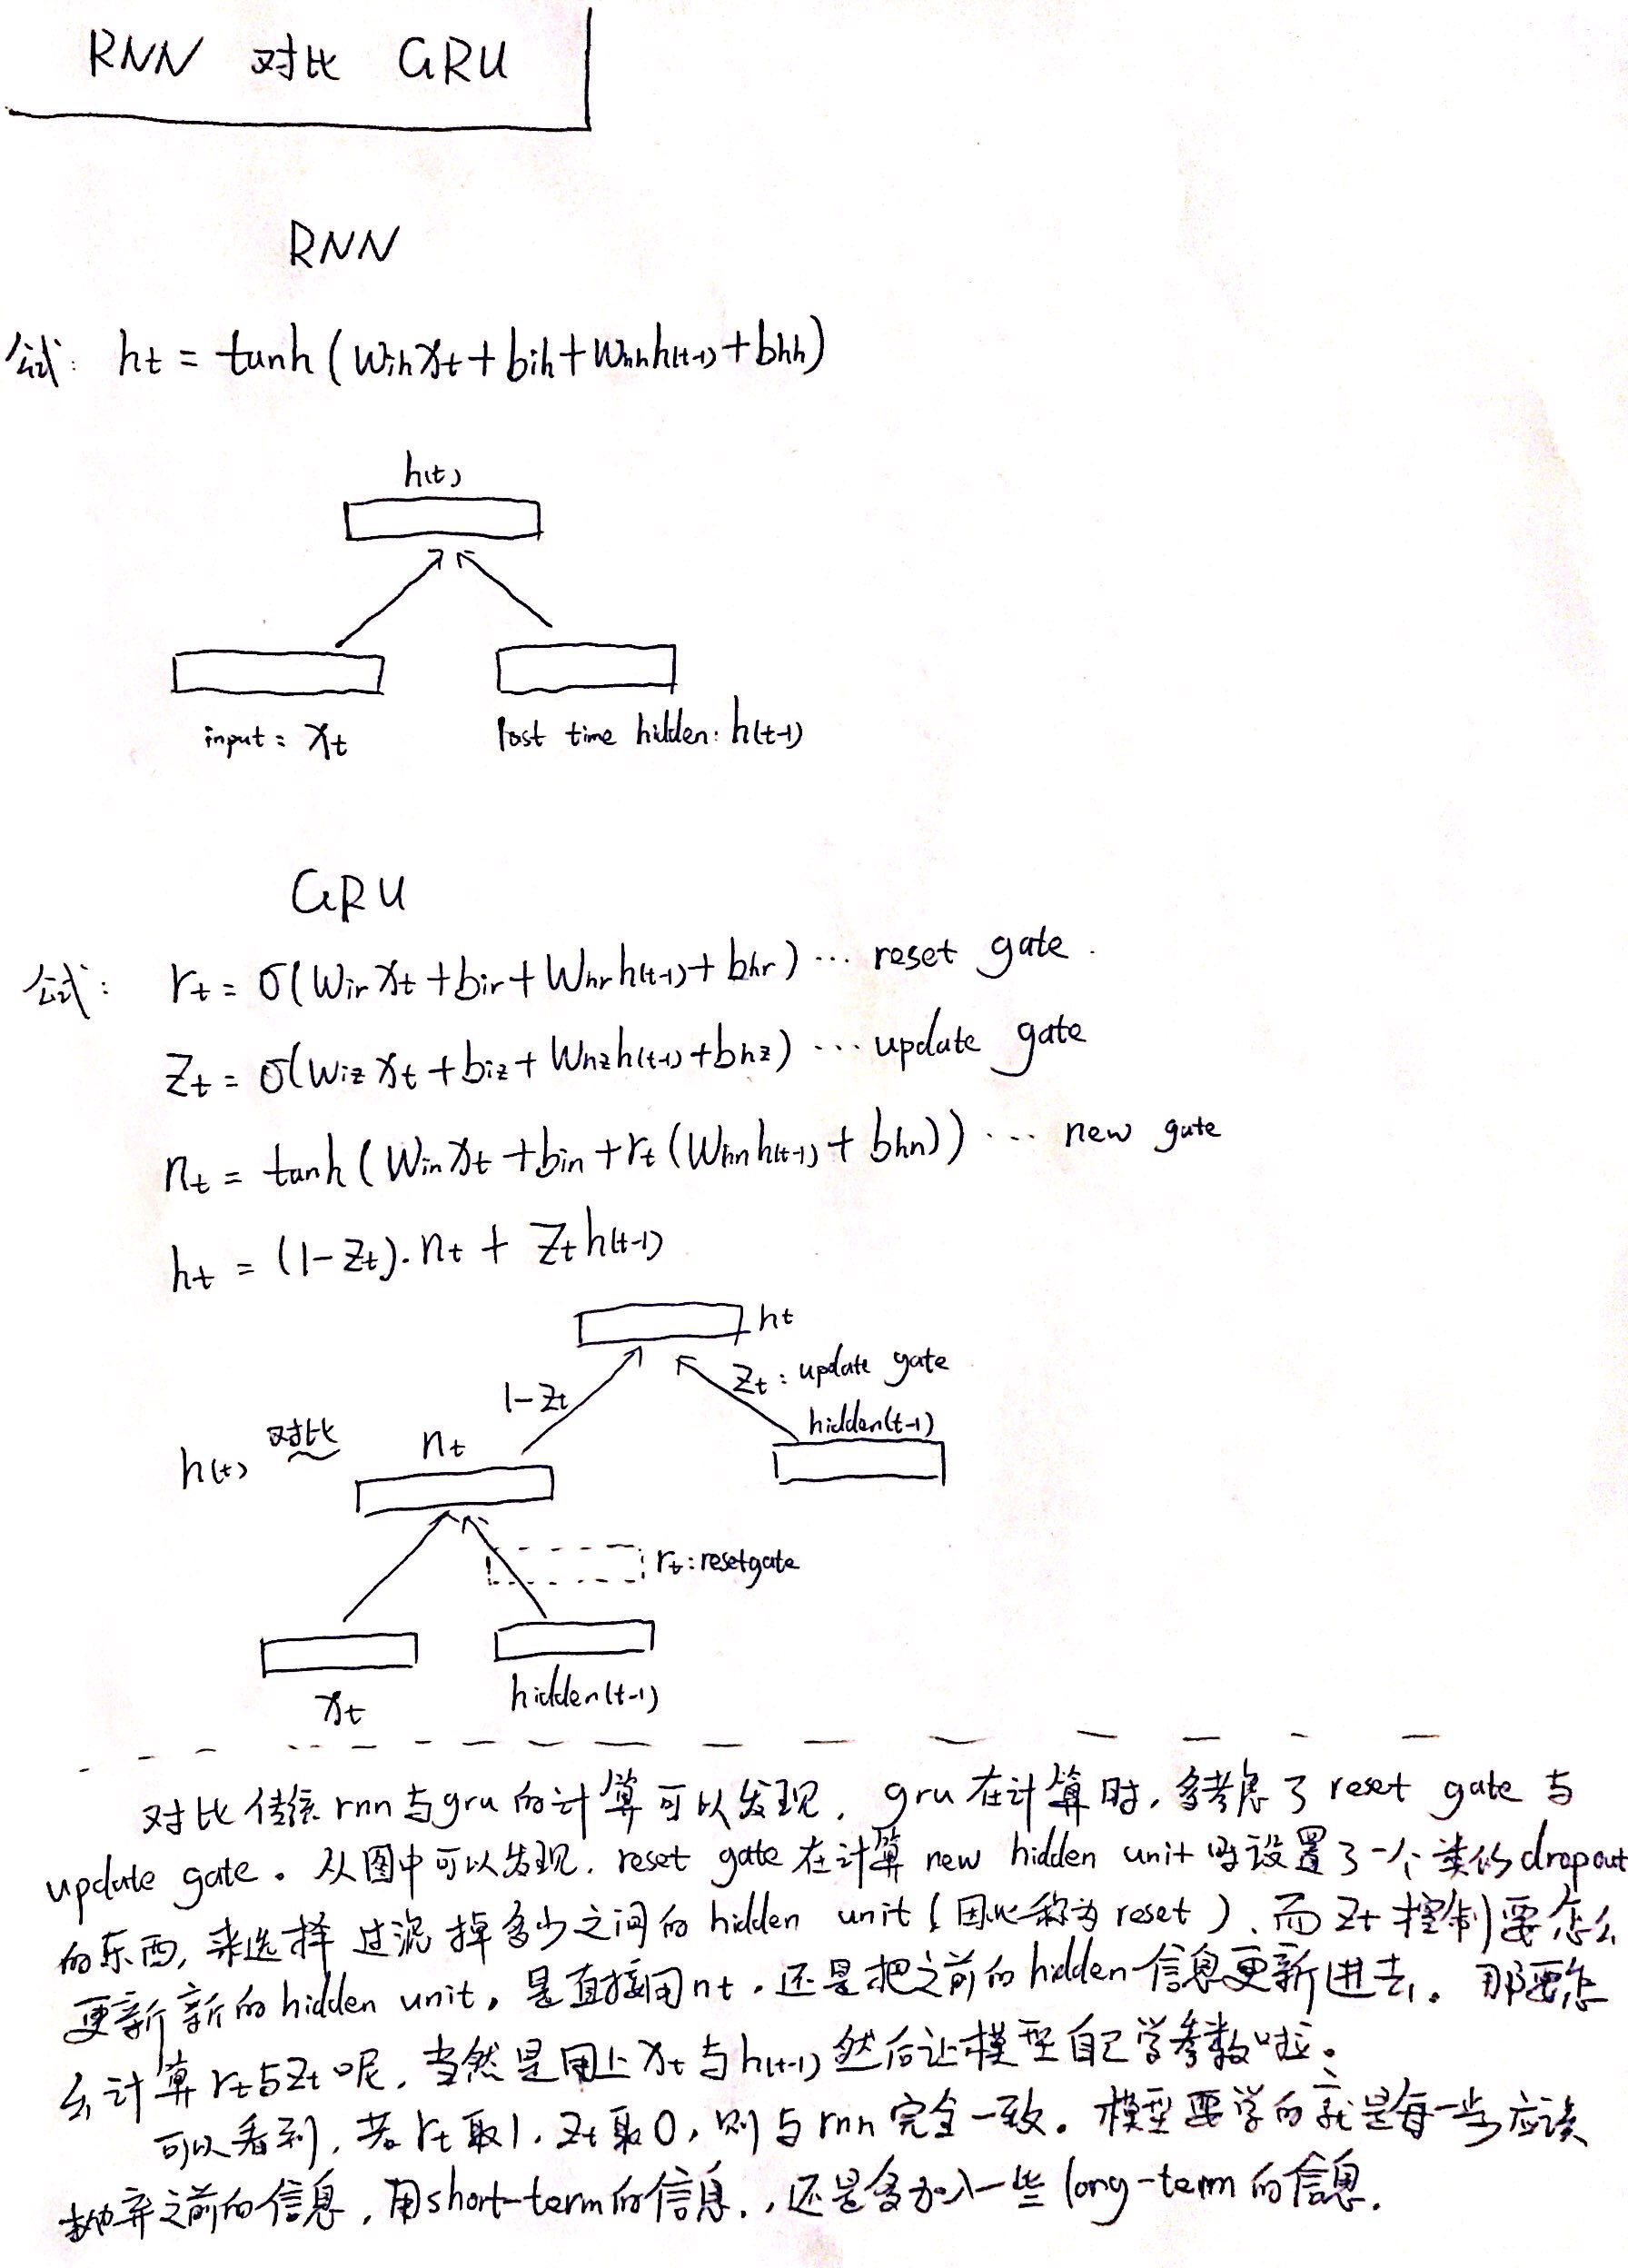 RNN 对比 GRU
RNN
公式: ht = tanh (Wih xt + bih + Whh h(t-1) + bhh)
h(t)
input: xt
last time hidden: h(t-1)
GRU
公式: rt = σ(Wir xt + bir + Whr h(t-1) + bhr) ··· reset gate.
zt = σ(Wiz xt + biz + Whz h(t-1) + bhz) ··· update gate
nt = tanh (Win xt + bin + rt (Whn h(t-1) + bhn)) ··· new gate
ht = (1-zt)·nt + zt h(t-1)
ht
1-zt
zt: update gate
hidden(t-1)
h(t) 对比 nt
rt: reset gate
xt
hidden(t-1)
对比传统rnn与gru的计算可以发现, gru在计算时,多考虑了reset gate与
update gate。从图中可以发现, reset gate在计算new hidden unit时设置了一个类似dropout
的东西,来选择过滤掉多少之间的hidden unit(因此称为reset)、而zt控制要怎么
更新新的hidden unit,是直接用nt,还是把之前的hidden信息更新进去。那要怎
么计算rt与zt呢,当然是用上xt与h(t-1)然后让模型自己学参数啦。
可以看到,若rt取1,zt取0,则与rnn完全一致。模型要学的就是每一步应该
抛弃之前的信息,用short-term的信息,,还是多加入一些long-term的信息.